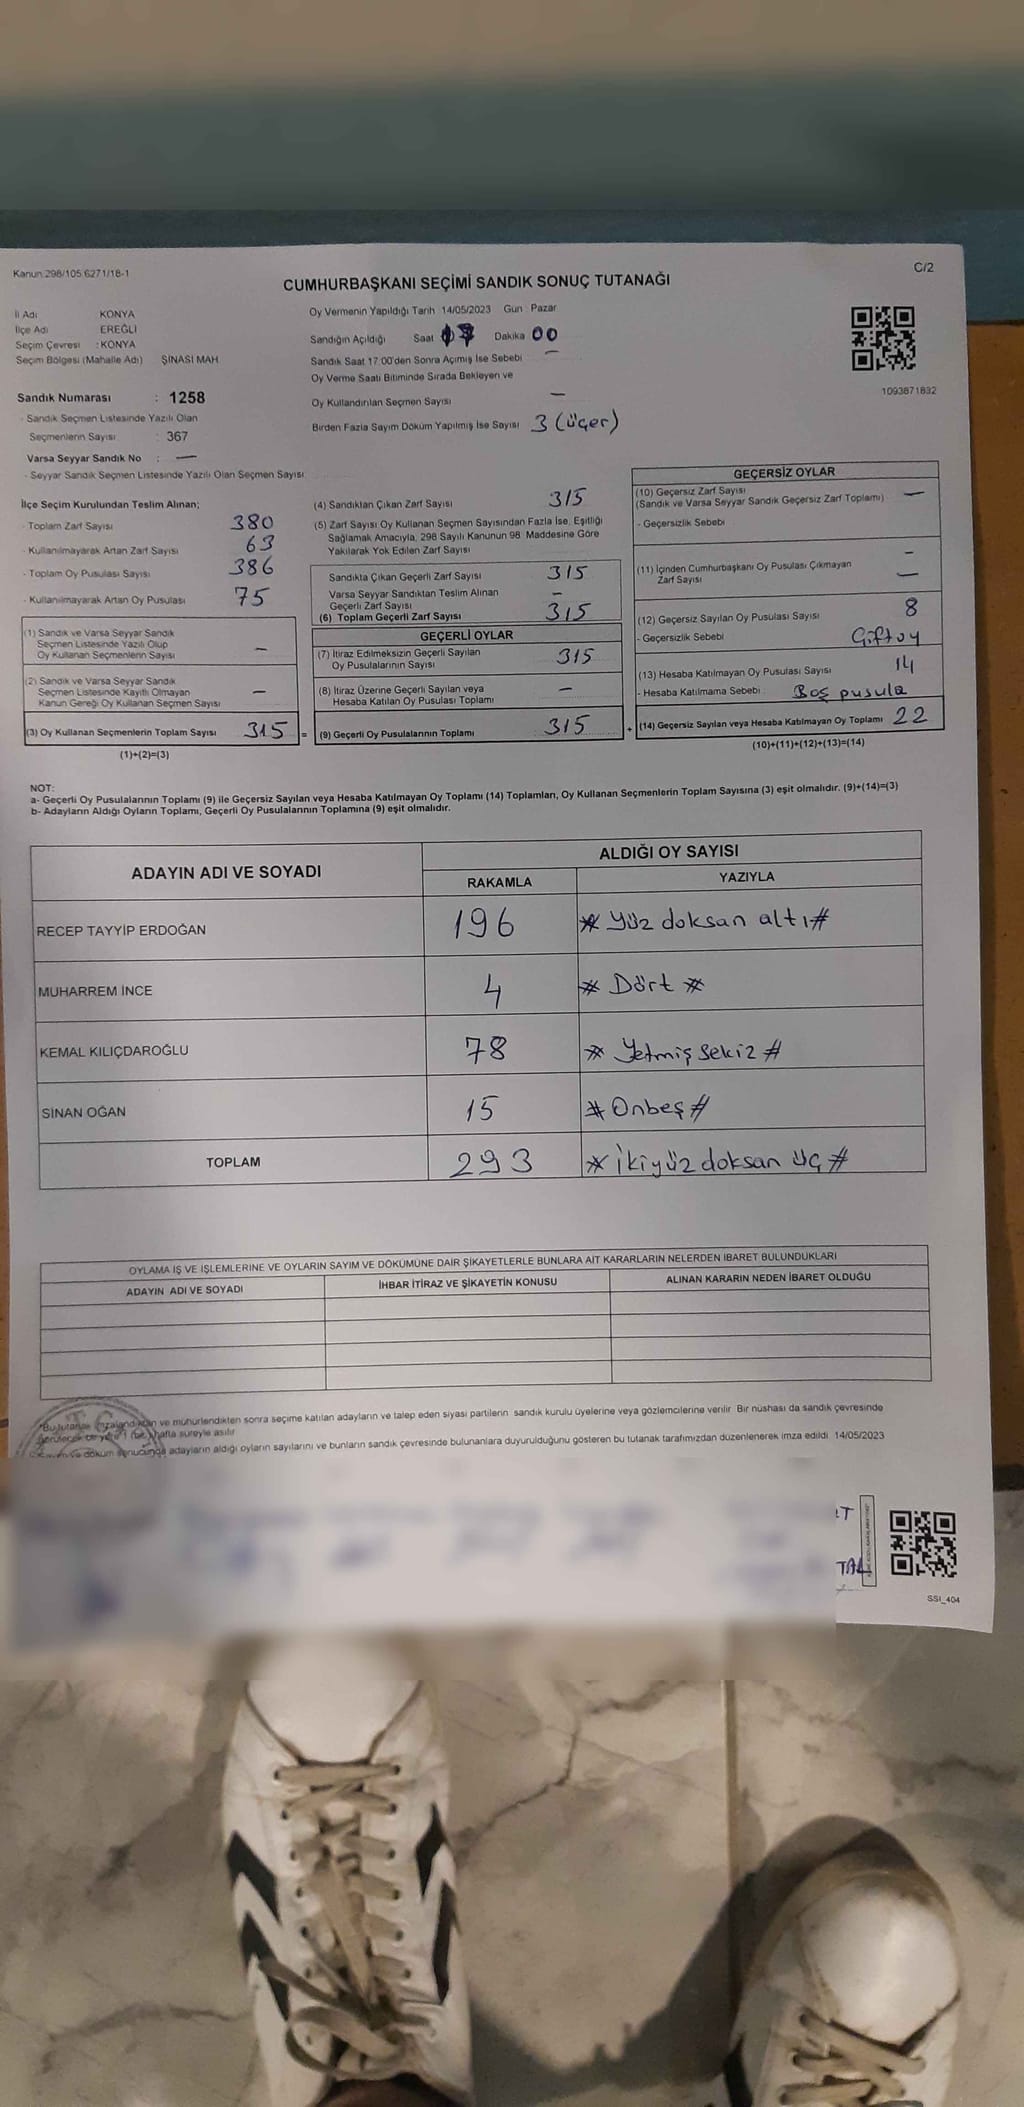 Kanun:298/105 6271/18-1
C/2
CUMHURBAŞKANI SEÇİMİ SANDIK SONUÇ TUTANAĞI
İl Adı KONYA
İlçe Adı EREĞLİ
Seçim Çevresi : KONYA
Seçim Bölgesi (Mahalle Adı) ŞİNASİ MAH
Sandık Numarası : 1258
- Sandık Seçmen Listesinde Yazılı Olan
Seçmenlerin Sayısı : 367
Varsa Seyyar Sandık No : —
- Seyyar Sandık Seçmen Listesinde Yazılı Olan Seçmen Sayısı
Oy Vermenin Yapıldığı Tarih 14/05/2023 Gün Pazar
Sandığın Açıldığı Saat Dakika 00
Sandık Saat 17:00'den Sonra Açımış İse Sebebi —
Oy Verme Saati Bitiminde Sırada Bekleyen ve
Oy Kullandırılan Seçmen Sayısı —
Birden Fazla Sayım Döküm Yapılmış İse Sayısı 3 (üçer)
1093871832
İlçe Seçim Kurulundan Teslim Alınan;
- Toplam Zarf Sayısı 380
- Kullanılmayarak Artan Zarf Sayısı 63
- Toplam Oy Pusulası Sayısı 386
- Kullanılmayarak Artan Oy Pusulası 75
(1) Sandık ve Varsa Seyyar Sandık
Seçmen Listesinde Yazılı Olup
Oy Kullanan Seçmenlerin Sayısı —
(2) Sandık ve Varsa Seyyar Sandık
Seçmen Listesinde Kayıtlı Olmayan
Kanun Gereği Oy Kullanan Seçmen Sayısı —
(3) Oy Kullanan Seçmenlerin Toplam Sayısı 315 =
(1)+(2)=(3)
(4) Sandıktan Çıkan Zarf Sayısı 315
(5) Zarf Sayısı Oy Kullanan Seçmen Sayısından Fazla İse, Eşitliği
Sağlamak Amacıyla, 298 Sayılı Kanunun 98. Maddesine Göre
Yakılarak Yok Edilen Zarf Sayısı
Sandıkta Çıkan Geçerli Zarf Sayısı 315
Varsa Seyyar Sandıktan Teslim Alınan
Geçerli Zarf Sayısı —
(6) Toplam Geçerli Zarf Sayısı 315
GEÇERLİ OYLAR
(7) İtiraz Edilmeksizin Geçerli Sayılan
Oy Pusulalarının Sayısı 315
(8) İtiraz Üzerine Geçerli Sayılan veya
Hesaba Katılan Oy Pusulası Toplamı —
(9) Geçerli Oy Pusulalarının Toplamı 315 +
GEÇERSİZ OYLAR
(10) Geçersiz Zarf Sayısı
(Sandık ve Varsa Seyyar Sandık Geçersiz Zarf Toplamı) —
- Geçersizlik Sebebi
—
(11) İçinden Cumhurbaşkanı Oy Pusulası Çıkmayan
Zarf Sayısı —
(12) Geçersiz Sayılan Oy Pusulası Sayısı 8
- Geçersizlik Sebebi : Çift oy
(13) Hesaba Katılmayan Oy Pusulası Sayısı 14
- Hesaba Katılmama Sebebi : Boş pusula
(14) Geçersiz Sayılan veya Hesaba Katılmayan Oy Toplamı 22
(10)+(11)+(12)+(13)=(14)
NOT:
a- Geçerli Oy Pusulalarının Toplamı (9) ile Geçersiz Sayılan veya Hesaba Katılmayan Oy Toplamı (14) Toplamları, Oy Kullanan Seçmenlerin Toplam Sayısına (3) eşit olmalıdır. (9)+(14)=(3)
b- Adayların Aldığı Oyların Toplamı, Geçerli Oy Pusulalarının Toplamına (9) eşit olmalıdır.
ADAYIN ADI VE SOYADI
ALDIĞI OY SAYISI
RAKAMLA YAZIYLA
RECEP TAYYİP ERDOĞAN 196 # Yüz doksan altı #
MUHARREM İNCE 4 # Dört #
KEMAL KILIÇDAROĞLU 78 # Yetmiş sekiz #
SİNAN OĞAN 15 # Onbeş #
TOPLAM 293 # ikiyüz doksan üç #
OYLAMA İŞ VE İŞLEMLERİNE VE OYLARIN SAYIM VE DÖKÜMÜNE DAİR ŞİKAYETLERLE BUNLARA AİT KARARLARIN NELERDEN İBARET BULUNDUKLARI
ADAYIN ADI VE SOYADI İHBAR İTİRAZ VE ŞİKAYETİN KONUSU ALINAN KARARIN NEDEN İBARET OLDUĞU
T.C.
*Bu tutanak imzalandıktan ve mühürlendikten sonra seçime katılan adayların ve talep eden siyasi partilerin sandık kurulu üyelerine veya gözlemcilerine verilir Bir nüshası da sandık çevresinde
görülecek bir yere 1 (bir) hafta süreyle asılır
Sayım ve döküm sonucunda adayların aldığı oyların sayılarını ve bunların sandık çevresinde bulunanlara duyurulduğunu gösteren bu tutanak tarafımızdan düzenlenerek imza edildi 14/05/2023
SSI_404